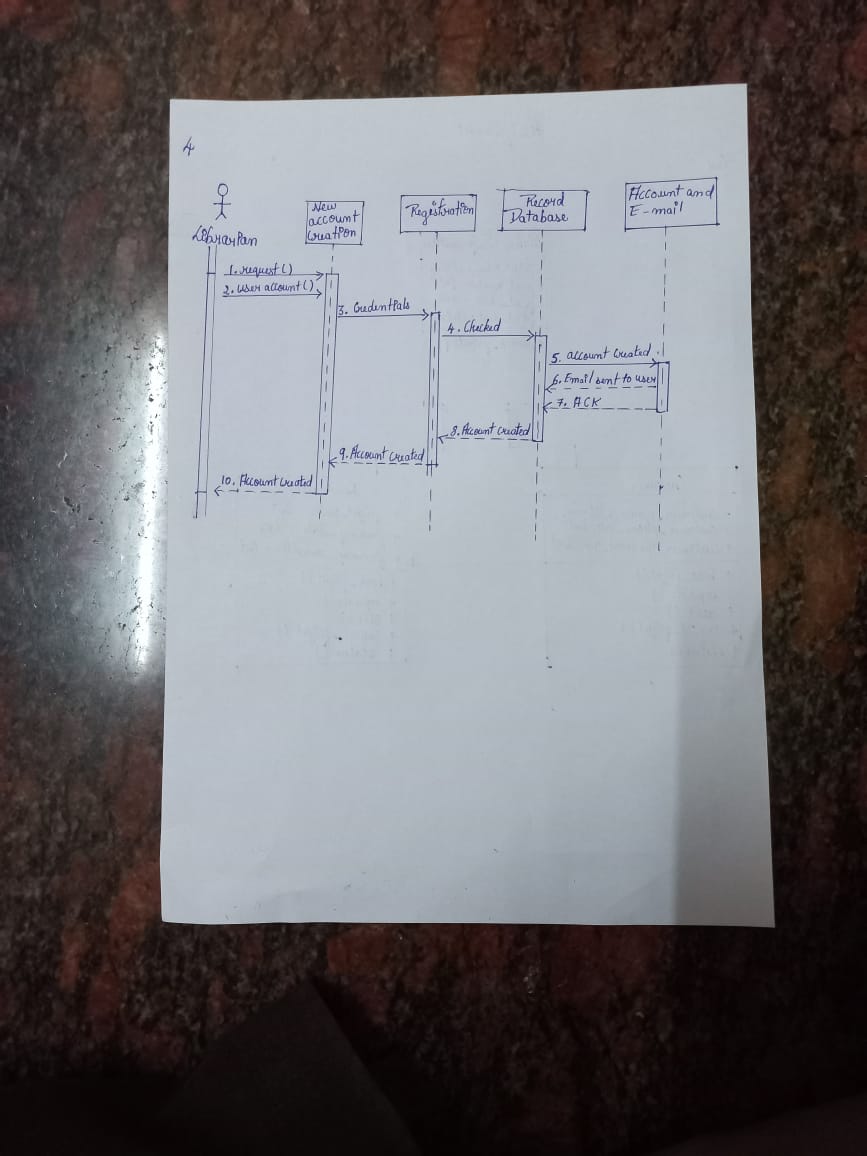 4
Librarian
New
account
Creation
Registration
Record
Database
Account and
E-mail
1. request()
2. user account()
3. Credentials
4. Checked
5. account Created
6. Email sent to user
7. ACK
8. Account Created
9. Account Created
10. Account Created